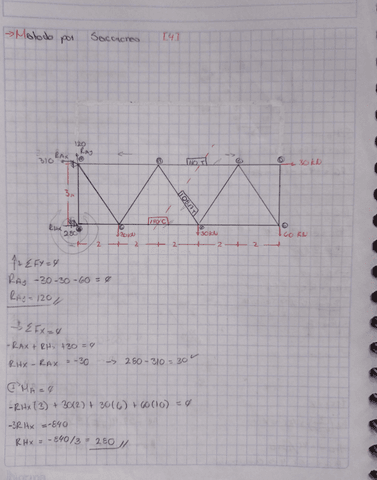 → Metodo por Secciones [4]
120
310 RAx RAy
110 T
30 KN
3m
RHx
280
30KN 30KN 60 KN
2 2 2 2 2
↑+ ΣFy=0
RAy -30-30-60=0
RAy = 120 //
→+ ΣFx=0
-RAx + RHx +30 = 0
RHx - RAx = -30 → 280-310=30 ✓
MA = 0
-RHx(3) + 30(2) + 30(6) + 60(10) = 0
-3RHx = -840
RHx = -840/3 = 280 //